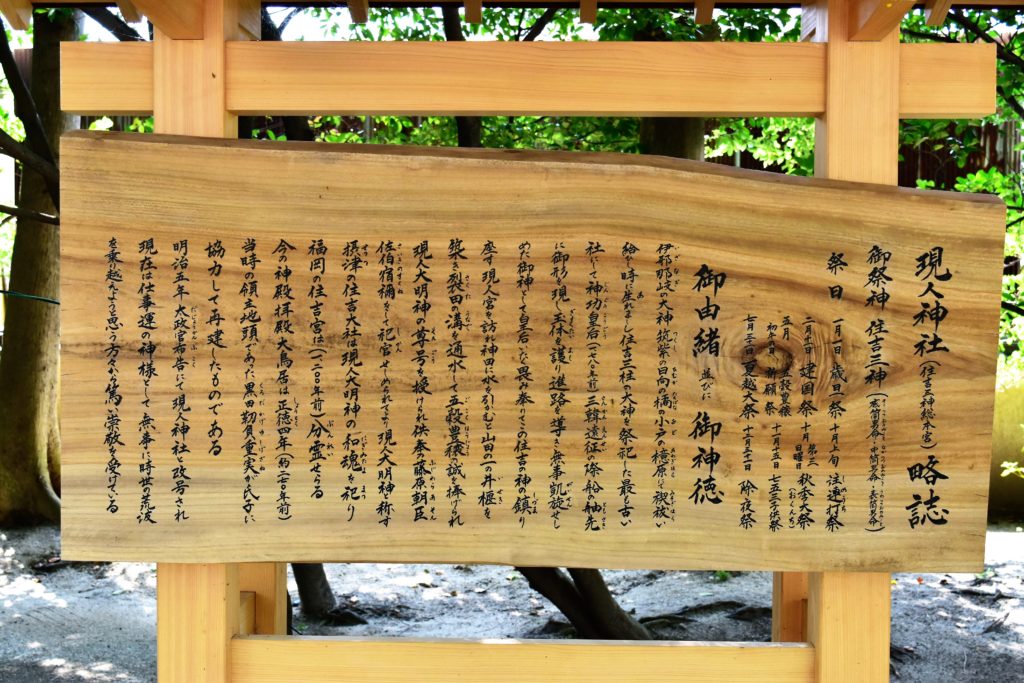 現人神社（住吉大神総本宮）略誌
御祭神 住吉三神（底筒男命 中筒男命 表筒男命）
祭日 一月一日 歳旦祭 十月上旬 注連打祭
二月十一日 建国祭 十月 第三日曜日 秋季大祭（おくんち）
五月 五穀豊穣祈願祭 十一月十五日 七五三子供祭
七月三十一日 夏越大祭 十二月三十一日 除夜祭
御由緒 並びに 御神徳
伊邪那岐の大神、筑紫の日向の橘の小戸の檍原にて禊祓い
給いし時に生れましし住吉三柱の大神を祭祀した最も古い
社にして神功皇后三韓遠征の際、船の舳先
に御形を現し玉体を護り進路を導き無事凱旋せし
めた御神として皇后いたく畏み奉りてこの住吉の神の鎮り
座す現人宮を訪れ神田に水を引かむと山田の一の井堰を
築き裂田の溝を通水して五穀豊穣の誠を捧げられ
現人大明神の尊号を授けられ供奉の藤原朝臣
佐伯宿禰をして祀官せしめられてより現人大明神と称す
摂津の住吉大社は現人大明神の和魂を祀り
福岡の住吉宮は（一二〇〇年前）分霊せらる
今の神殿拝殿大鳥居は正徳四年（約二七〇年前）
当時の領主地頭であった黒田靭負重実が氏子に
協力して再建したものである
明治五年太政官布告にて現人神社と改号され
現在は仕事運の神様として無事に時世の荒波
を乗り越えようと思う方々から篤い崇敬を受けている